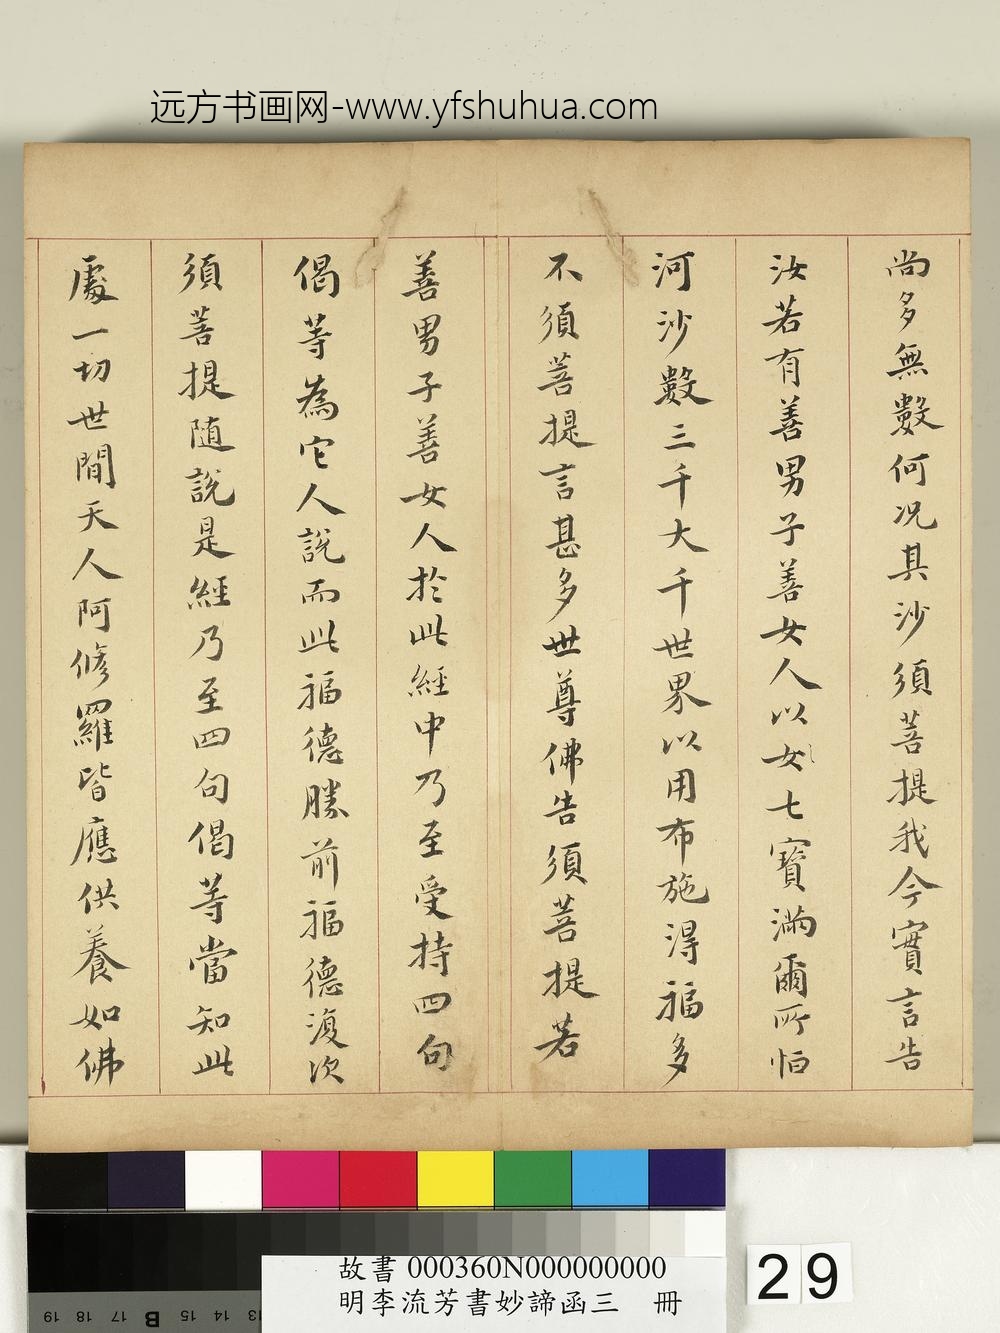 远方书画网-www.yfshuhua.com
尚多無數何况其沙須菩提我今實言告
汝若有善男子善女人以女七寶滿爾所恒
河沙數三千大千世界以用布施得福多
不須菩提言甚多世尊佛告須菩提若
善男子善女人於此經中乃至受持四句
偈等為它人說而此福德勝前福德復次
須菩提随說是經乃至四句偈等當知此
處一切世間天人阿脩羅皆應供養如佛
故書 000360N000000000
明李流芳書妙諦函三 冊
29
19 18 17 B 15 14 13